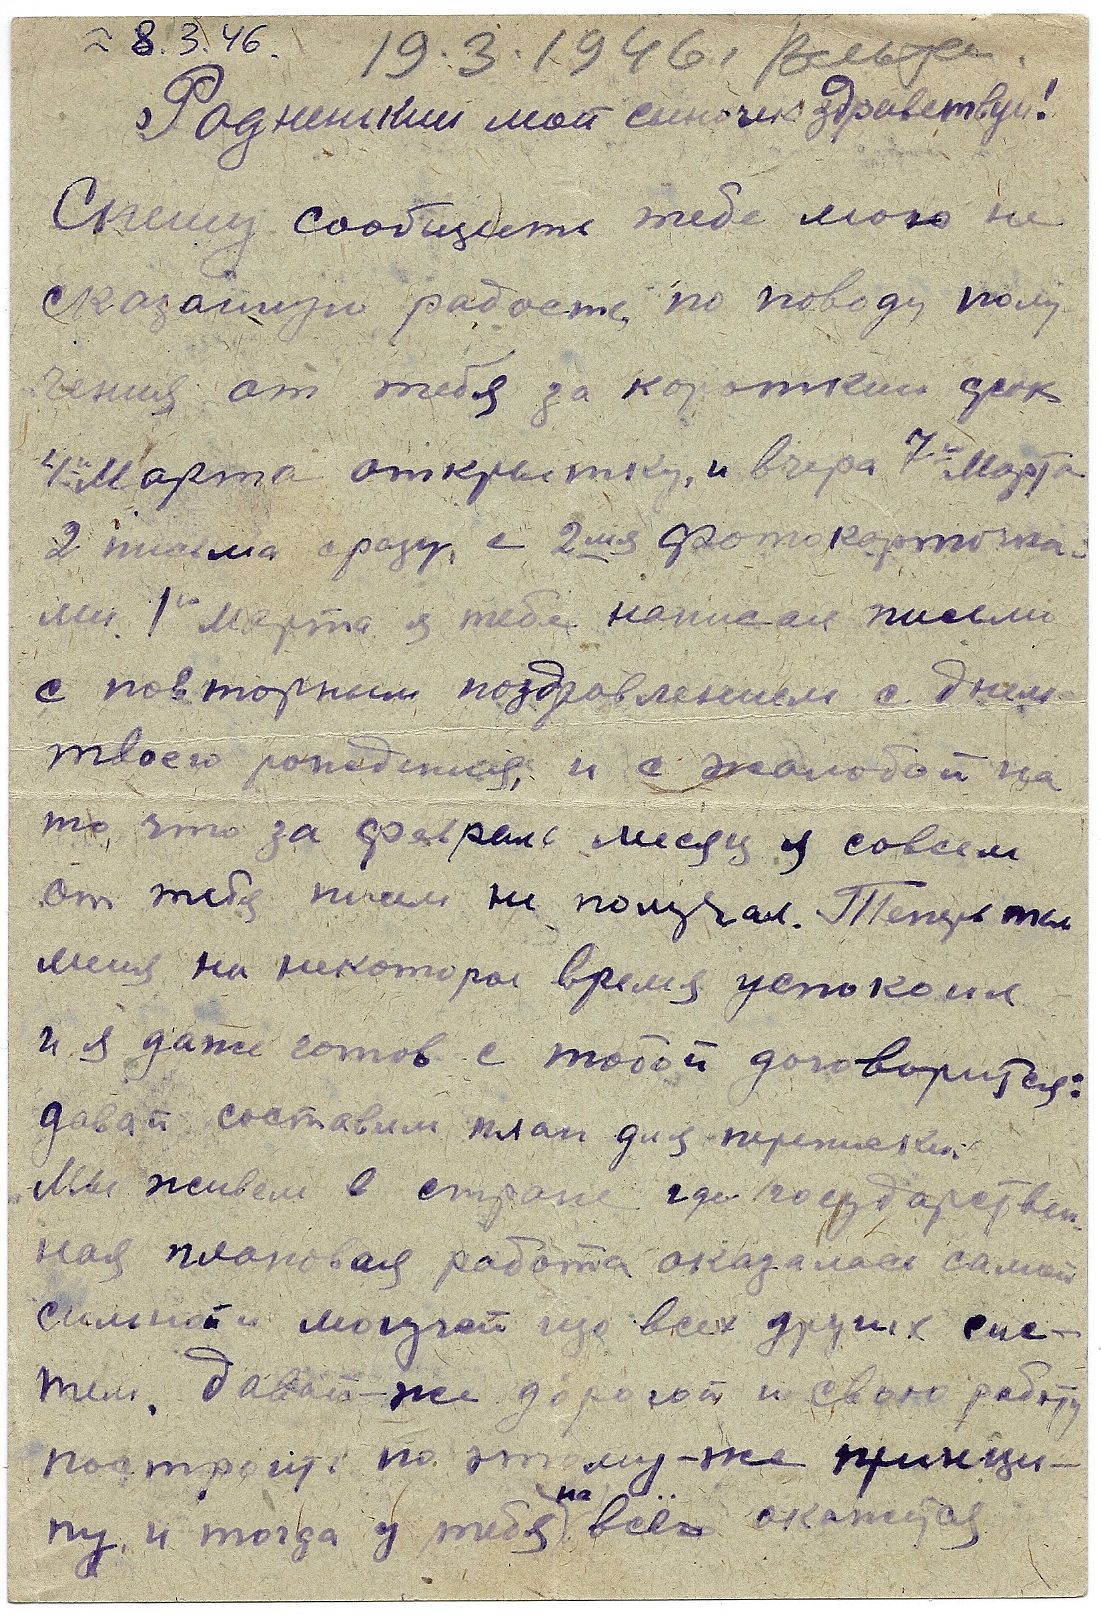 ≈ 8.3.46.
19.3.1946.
Родненький мой сыночек здравствуй!
Спешу сообщить тебе мою не
сказанную радость, по поводу полу
чения от тебя за короткий срок
4го Марта открытку, и вчера 7го Марта
2 письма сразу, с 2мя Фотокарточка-
ми. 1го Марта я тебе написал письмо
с повторным поздравлением с днем
твоего рождения, и с жалобой на
то, что за февраль месяц я совсем
от тебя писем не получал. Теперь ты
меня на некоторое время успокоил
и я даже готов с тобой договорится:
давай составим план для переписки.
Мы живем в стране где государствен-
ная плановая работа оказалась самой
сильной и могучей изо всех других сис-
тем. Давай-же дорогой и свою работу
построить по этому-же принци-
пу, и тогда у тебя на всё окажется